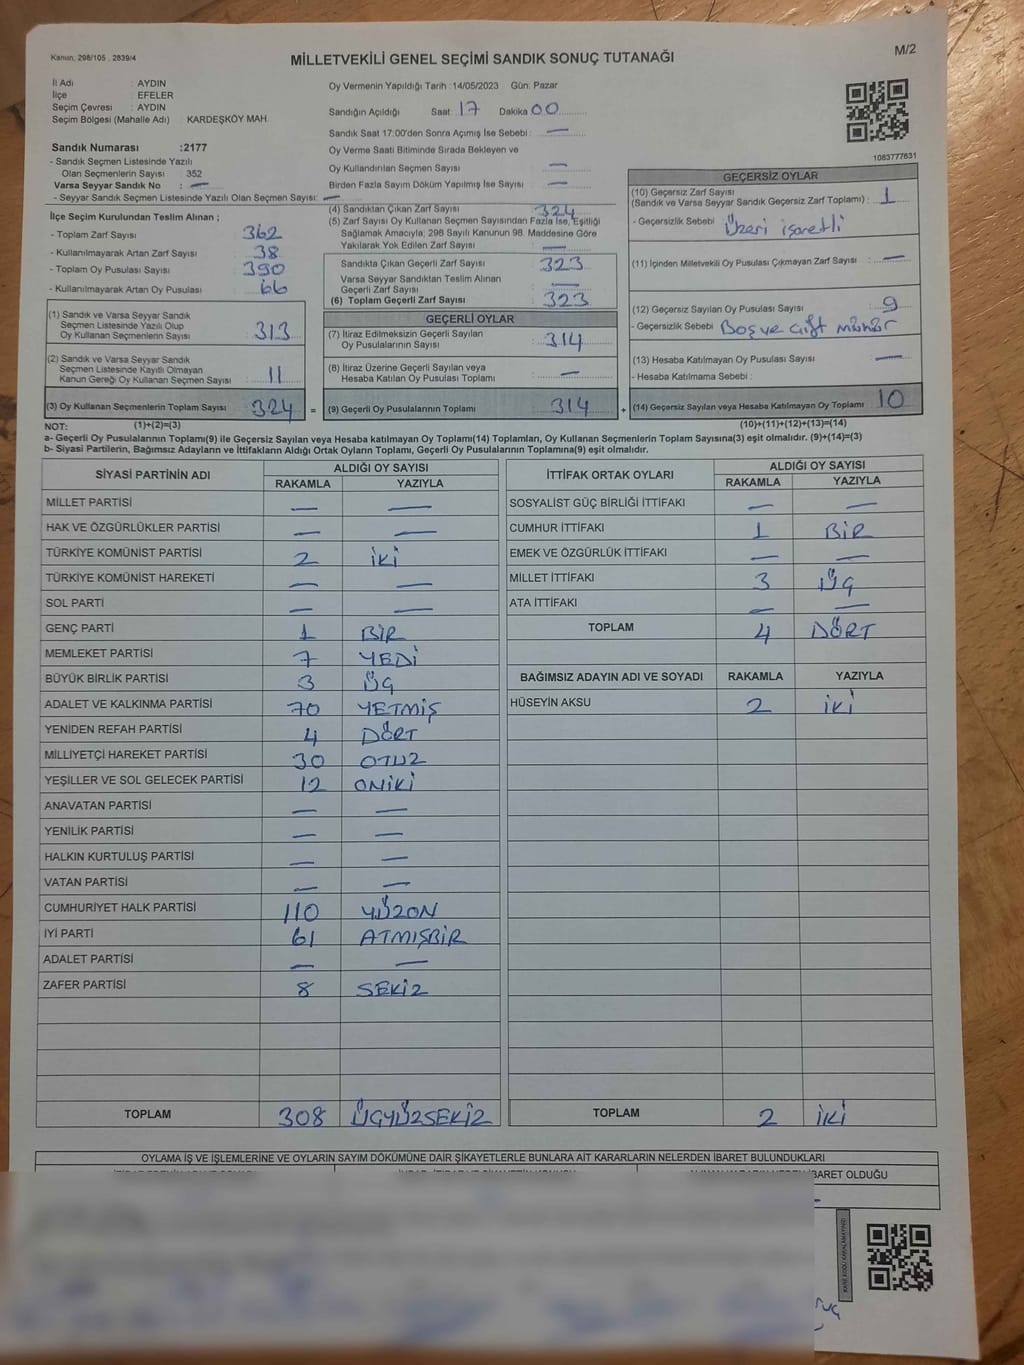 Kanun, 298/105 , 2839/4
MİLLETVEKİLİ GENEL SEÇİMİ SANDIK SONUÇ TUTANAĞI
M/2
İl Adı : AYDIN
İlçe : EFELER
Seçim Çevresi : AYDIN
Seçim Bölgesi (Mahalle Adı) KARDEŞKÖY MAH.
Sandık Numarası :2177
- Sandık Seçmen Listesinde Yazılı
Olan Seçmenlerin Sayısı 352
Varsa Seyyar Sandık No : —
- Seyyar Sandık Seçmen Listesinde Yazılı Olan Seçmen Sayısı: —
İlçe Seçim Kurulundan Teslim Alınan ;
- Toplam Zarf Sayısı 362
- Kullanılmayarak Artan Zarf Sayısı 38
- Toplam Oy Pusulası Sayısı 390
- Kullanılmayarak Artan Oy Pusulası 66
(1) Sandık ve Varsa Seyyar Sandık
Seçmen Listesinde Yazılı Olup
Oy Kullanan Seçmenlerin Sayısı 313
(2) Sandık ve Varsa Seyyar Sandık
Seçmen Listesinde Kayıtlı Olmayan
Kanun Gereği Oy Kullanan Seçmen Sayısı 11
(3) Oy Kullanan Seçmenlerin Toplam Sayısı 324 =
Oy Vermenin Yapıldığı Tarih :14/05/2023 Gün: Pazar
Sandığın Açıldığı Saat 17 Dakika 00
Sandık Saat 17:00'den Sonra Açımış İse Sebebi : —
Oy Verme Saati Bitiminde Sırada Bekleyen ve
Oy Kullandırılan Seçmen Sayısı —
Birden Fazla Sayım Döküm Yapılmış İse Sayısı —
(4) Sandıktan Çıkan Zarf Sayısı 324
(5) Zarf Sayısı Oy Kullanan Seçmen Sayısından Fazla İse, Eşitliği
Sağlamak Amacıyla, 298 Sayılı Kanunun 98. Maddesine Göre
Yakılarak Yok Edilen Zarf Sayısı —
Sandıkta Çıkan Geçerli Zarf Sayısı 323
Varsa Seyyar Sandıktan Teslim Alınan
Geçerli Zarf Sayısı —
(6) Toplam Geçerli Zarf Sayısı 323
GEÇERLİ OYLAR
(7) İtiraz Edilmeksizin Geçerli Sayılan
Oy Pusulalarının Sayısı 314
(8) İtiraz Üzerine Geçerli Sayılan veya
Hesaba Katılan Oy Pusulası Toplamı —
(9) Geçerli Oy Pusulalarının Toplamı 314 +
1083777631
GEÇERSİZ OYLAR
(10) Geçersiz Zarf Sayısı
(Sandık ve Varsa Seyyar Sandık Geçersiz Zarf Toplamı) : 1
- Geçersizlik Sebebi Üzeri işaretli
(11) İçinden Milletvekili Oy Pusulası Çıkmayan Zarf Sayısı : —
(12) Geçersiz Sayılan Oy Pusulası Sayısı : 9
- Geçersizlik Sebebi Boş ve çift mühür
(13) Hesaba Katılmayan Oy Pusulası Sayısı —
- Hesaba Katılmama Sebebi :
(14) Geçersiz Sayılan veya Hesaba Katılmayan Oy Toplamı 10
NOT: (1)+(2)=(3) (10)+(11)+(12)+(13)=(14)
a- Geçerli Oy Pusulalarının Toplamı(9) ile Geçersiz Sayılan veya Hesaba katılmayan Oy Toplamı(14) Toplamları, Oy Kullanan Seçmenlerin Toplam Sayısına(3) eşit olmalıdır. (9)+(14)=(3)
b- Siyasi Partilerin, Bağımsız Adayların ve İttifakların Aldığı Ortak Oyların Toplamı, Geçerli Oy Pusulalarının Toplamına(9) eşit olmalıdır.
SİYASİ PARTİNİN ADI ALDIĞI OY SAYISI
RAKAMLA YAZIYLA
MİLLET PARTİSİ — —
HAK VE ÖZGÜRLÜKLER PARTİSİ — —
TÜRKİYE KOMÜNİST PARTİSİ 2 iKi
TÜRKİYE KOMÜNİST HAREKETİ — —
SOL PARTİ — —
GENÇ PARTİ 1 BİR
MEMLEKET PARTİSİ 7 YEDİ
BÜYÜK BİRLİK PARTİSİ 3 ÜÇ
ADALET VE KALKINMA PARTİSİ 70 YETMİŞ
YENİDEN REFAH PARTİSİ 4 DÖRT
MİLLİYETÇİ HAREKET PARTİSİ 30 OTUZ
YEŞİLLER VE SOL GELECEK PARTİSİ 12 ONİKİ
ANAVATAN PARTİSİ — —
YENİLİK PARTİSİ — —
HALKIN KURTULUŞ PARTİSİ — —
VATAN PARTİSİ — —
CUMHURİYET HALK PARTİSİ 110 YÜZON
İYİ PARTİ 61 ATMIŞBİR
ADALET PARTİSİ — —
ZAFER PARTİSİ 8 SEKİZ
TOPLAM 308 ÜÇYÜZSEKİZ
İTTİFAK ORTAK OYLARI ALDIĞI OY SAYISI
RAKAMLA YAZIYLA
SOSYALİST GÜÇ BİRLİĞİ İTTİFAKI — —
CUMHUR İTTİFAKI 1 BİR
EMEK VE ÖZGÜRLÜK İTTİFAKI — —
MİLLET İTTİFAKI 3 ÜÇ
ATA İTTİFAKI — —
TOPLAM 4 DÖRT
BAĞIMSIZ ADAYIN ADI VE SOYADI RAKAMLA YAZIYLA
HÜSEYİN AKSU 2 İKİ
TOPLAM 2 İKİ
OYLAMA İŞ VE İŞLEMLERİNE VE OYLARIN SAYIM DÖKÜMÜNE DAİR ŞİKAYETLERLE BUNLARA AİT KARARLARIN NELERDEN İBARET BULUNDUKLARI
BARET OLDUĞU